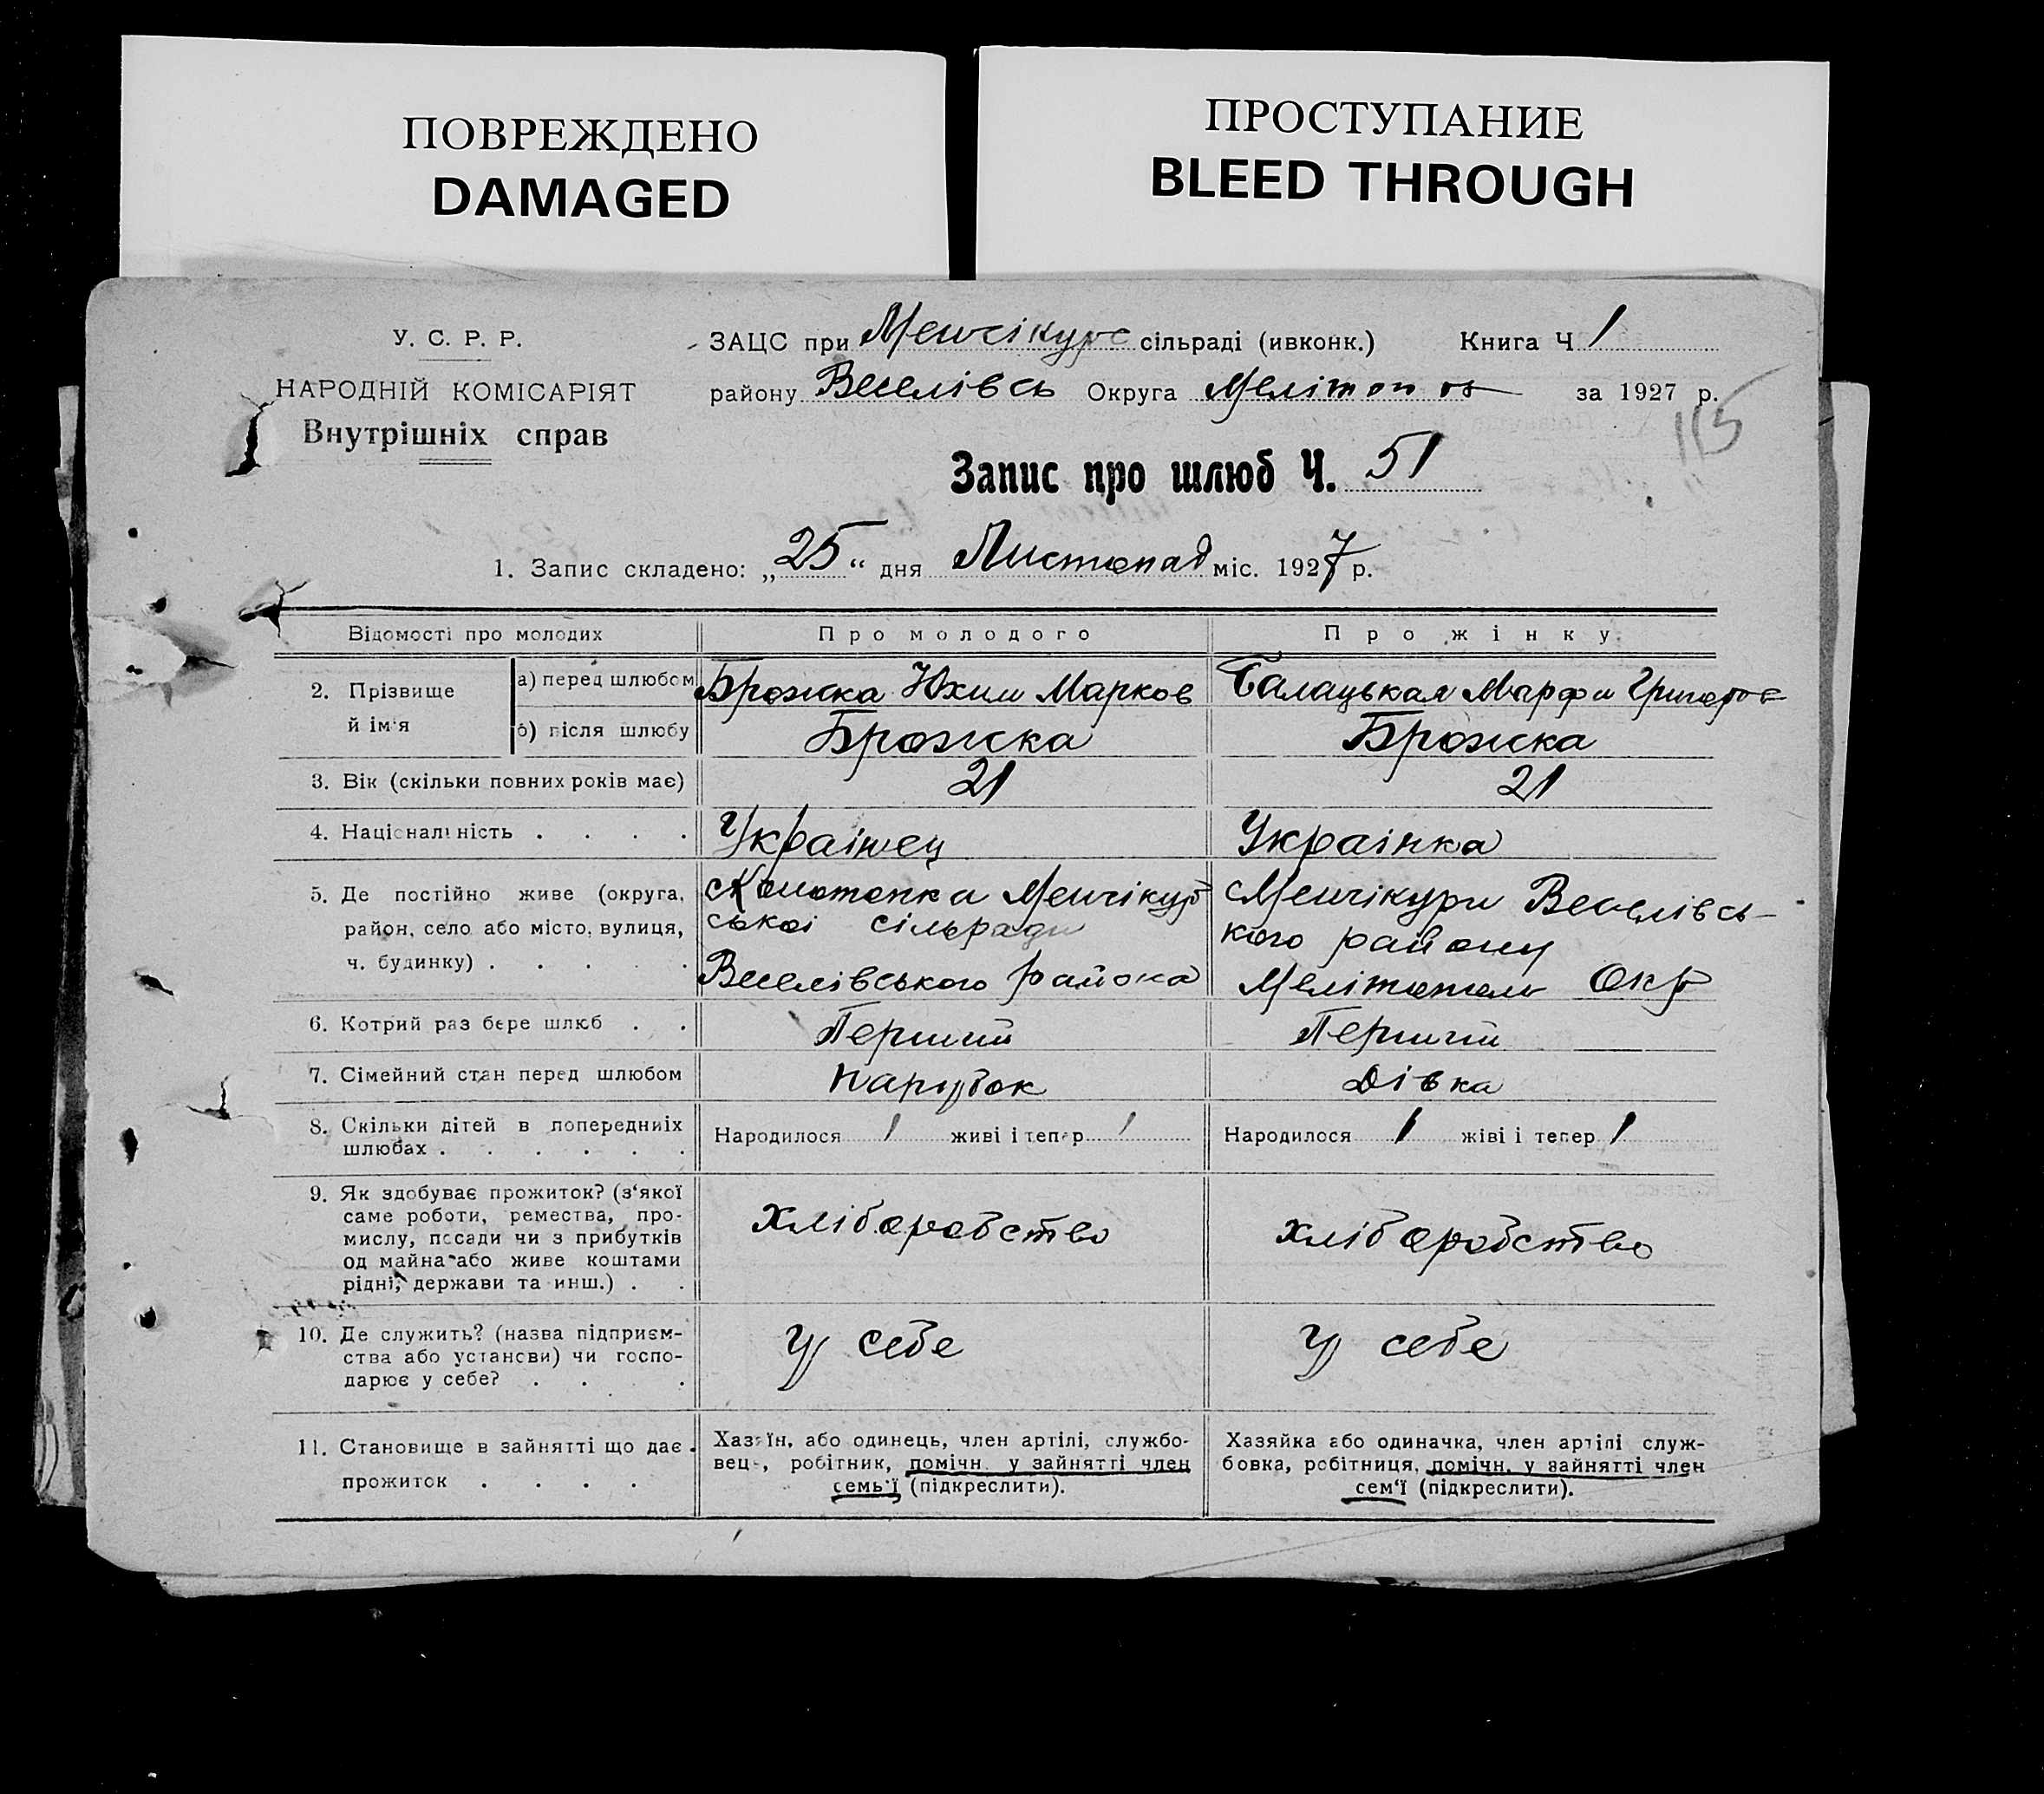 ПОВРЕЖДЕНО
DAMAGED
ПРОСТУПАНИЕ
BLEED THROUGH
У. С. Р. Р.
НАРОДНІЙ КОМІСАРІЯТ
Внутрішніх справ
ЗАЦС при Менчікурс сільраді (ивконк.) Книга Ч 1
району Веселівсь Округа Мелітоп за 1927 р.
115
Запис про шлюб Ч. 51
1. Запис складено: „25“ дня Листопад міс. 1927 р.
Відомості про молодих
Про молодого
Про жінку
2. Прізвище й ім'я
а) перед шлюбом
Брожка Юхим Марков
Балацькая Марфа Григоров
б) після шлюбу
Брожка
Брожка
3. Вік (скільки повних років має)
21
21
4. Національність . . . .
Українец
Українка
5. Де постійно живе (округа,
район, село або місто, вулиця,
ч. будинку) . . . . .
Менчікур
ської сільради
Веселівського района
Менчікури Веселівсь-
кого району
Мелітополь Окр
6. Котрий раз бере шлюб . .
Перший
Перший
7. Сімейний стан перед шлюбом
Парубок
Дівка
8. Скільки дітей в попередниіх
шлюбах . . . . . .
Народилося / живі і тепер /
Народилося / жіві і тепер /
9. Як здобуває прожиток? (з'якої
саме роботи, ремества, про-
мислу, посади чи з прибутків
од майна або живе коштами
рідні, держави та инш.) . .
Хліборобство
Хліборобство
10. Де служить? (назва підприєм-
ства або установи) чи госпо-
дарює у себе? . . . .
У себе
У себе
11. Становище в зайнятті що дає
прожиток . . . .
Хазяїн, або одинець, член артілі, службо-
вець, робітник, помічн. у зайнятті член
семь'ї (підкреслити).
Хазяйка або одиначка, член артілі служ-
бовка, робітниця, помічн. у зайнятті член
сем'ї (підкреслити).